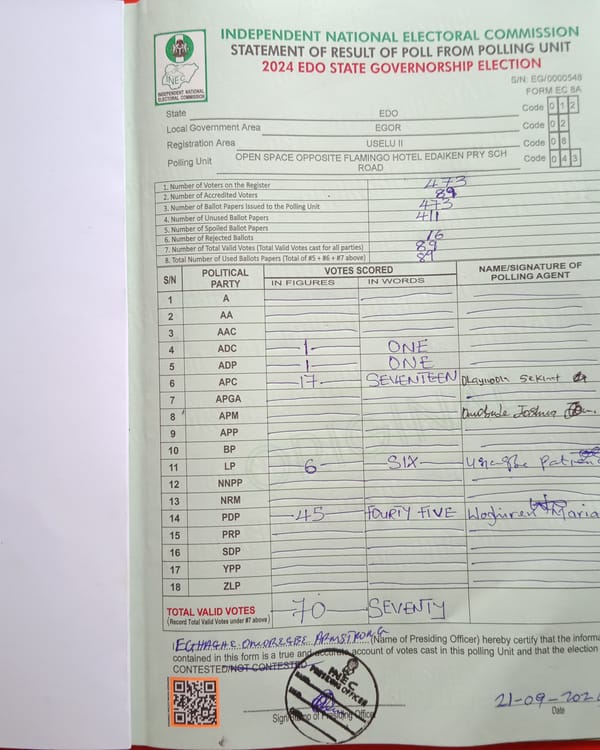 INDEPENDENT NATIONAL ELECTORAL COMMISSION
STATEMENT OF RESULT OF POLL FROM POLLING UNIT
2024 EDO STATE GOVERNORSHIP ELECTION
INEC
INDEPENDENT NATIONAL ELECTORAL COMMISSION
S/N: EG/0000548
FORM EC 8A
State EDO Code 0 1 2
Local Government Area EGOR Code 0 2
Registration Area USELU II Code 0 8
Polling Unit OPEN SPACE OPPOSITE FLAMINGO HOTEL EDAIKEN PRY SCH ROAD Code 0 4 3
1. Number of Voters on the Register 473
2. Number of Accredited Voters 89
3. Number of Ballot Papers Issued to the Polling Unit 473
4. Number of Unused Ballot Papers 411
5. Number of Spoiled Ballot Papers
6. Number of Rejected Ballots 16
7. Number of Total Valid Votes (Total Valid Votes cast for all parties) 89
8. Total Number of Used Ballots Papers (Total of #5 + #6 + #7 above) 89
S/N POLITICAL PARTY VOTES SCORED NAME/SIGNATURE OF POLLING AGENT
IN FIGURES IN WORDS
1 A
2 AA
3 AAC
4 ADC 1 ONE
5 ADP 1 ONE
6 APC 17 SEVENTEEN
7 APGA
8 APM Joshua
9 APP
10 BP
11 LP 6 SIX
12 NNPP
13 NRM
14 PDP 45 FOURTY FIVE Maria
15 PRP
16 SDP
17 YPP
18 ZLP
TOTAL VALID VOTES 70 SEVENTY
(Record Total Valid Votes under #7 above)
I EGHAGHE OMOREGBE ARMSTRONG (Name of Presiding Officer) hereby certify that the informa
contained in this form is a true and accurate account of votes cast in this polling Unit and that the election
CONTESTED/NOT CONTESTED
INEC
PRESIDING OFFICER
Sign/Stamp of Presiding Officer
21-09-202
Date